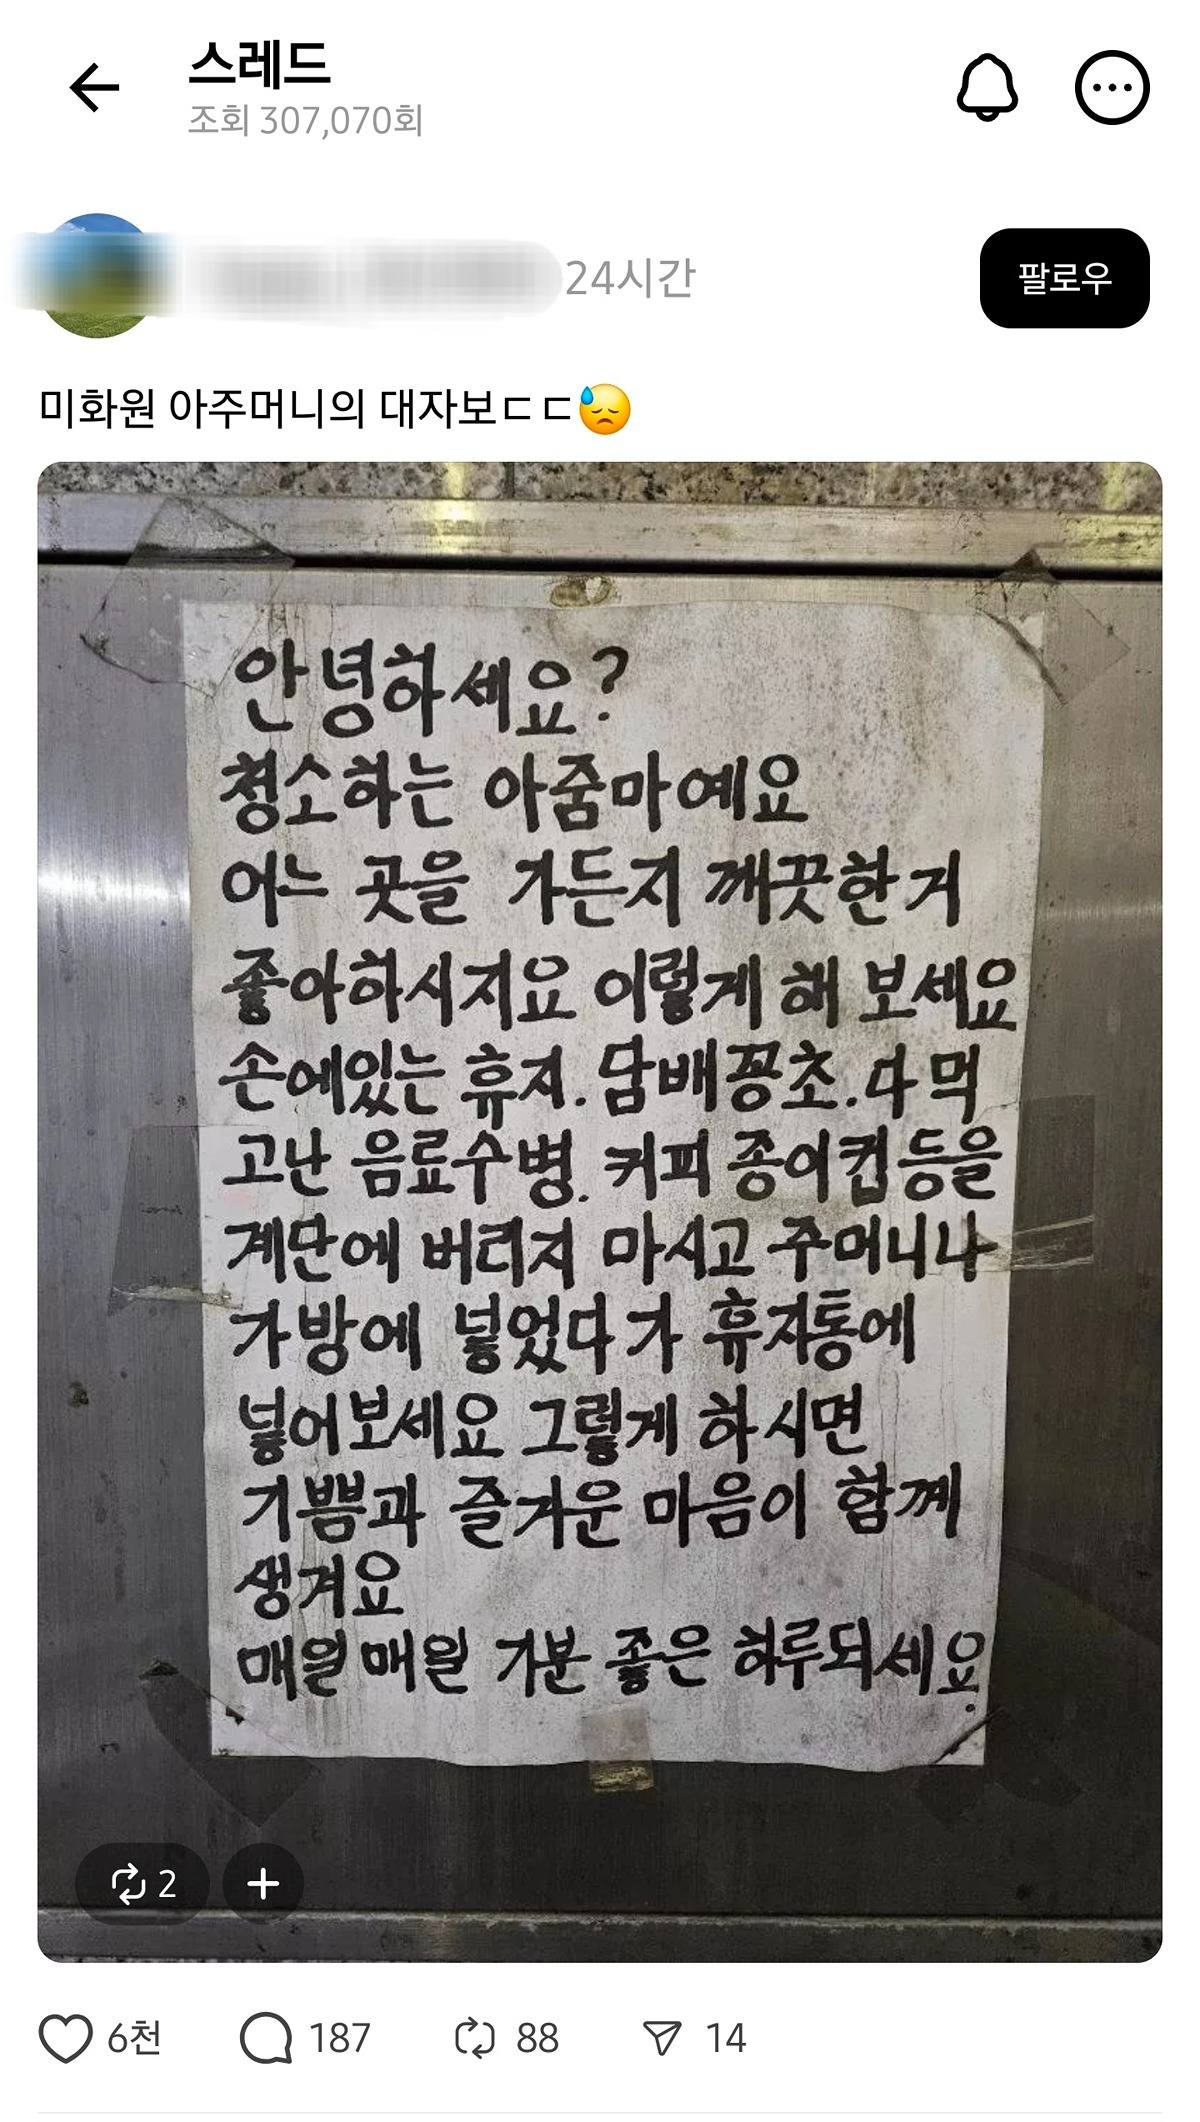 스레드
조회 307,070회
24시간
팔로우
미화원 아주머니의 대자보ㄷㄷ😓
안녕하세요?
청소하는 아줌마예요
어느 곳을 가든지 깨끗한거
좋아하시지요 이렇게 해 보세요
손에있는 휴지. 담배꽁초. 다 먹
고난 음료수병. 커피 종이컵등을
계단에 버리지 마시고 주머니나
가방에 넣었다가 휴지통에
넣어보세요 그렇게 하시면
기쁨과 즐거운 마음이 함께
생겨요
매일매일 기분 좋은 하루되세요.
2
6천
187
88
14